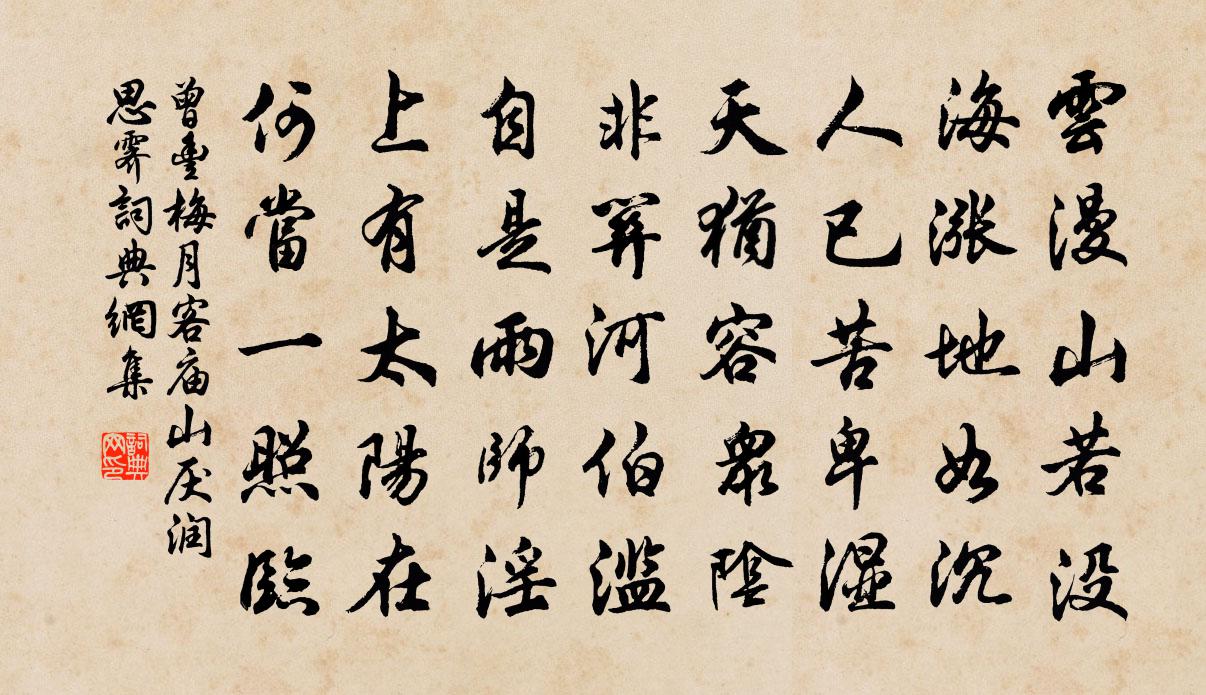 雲漫山若没
海漲地如沉
人已苦卑濕
天猶容衆陰
非關河伯濫
自是雨師淫
上有太陽在
何當一照臨
曾豊梅月客庙山厌润
思霽詞典網集
詞典网印